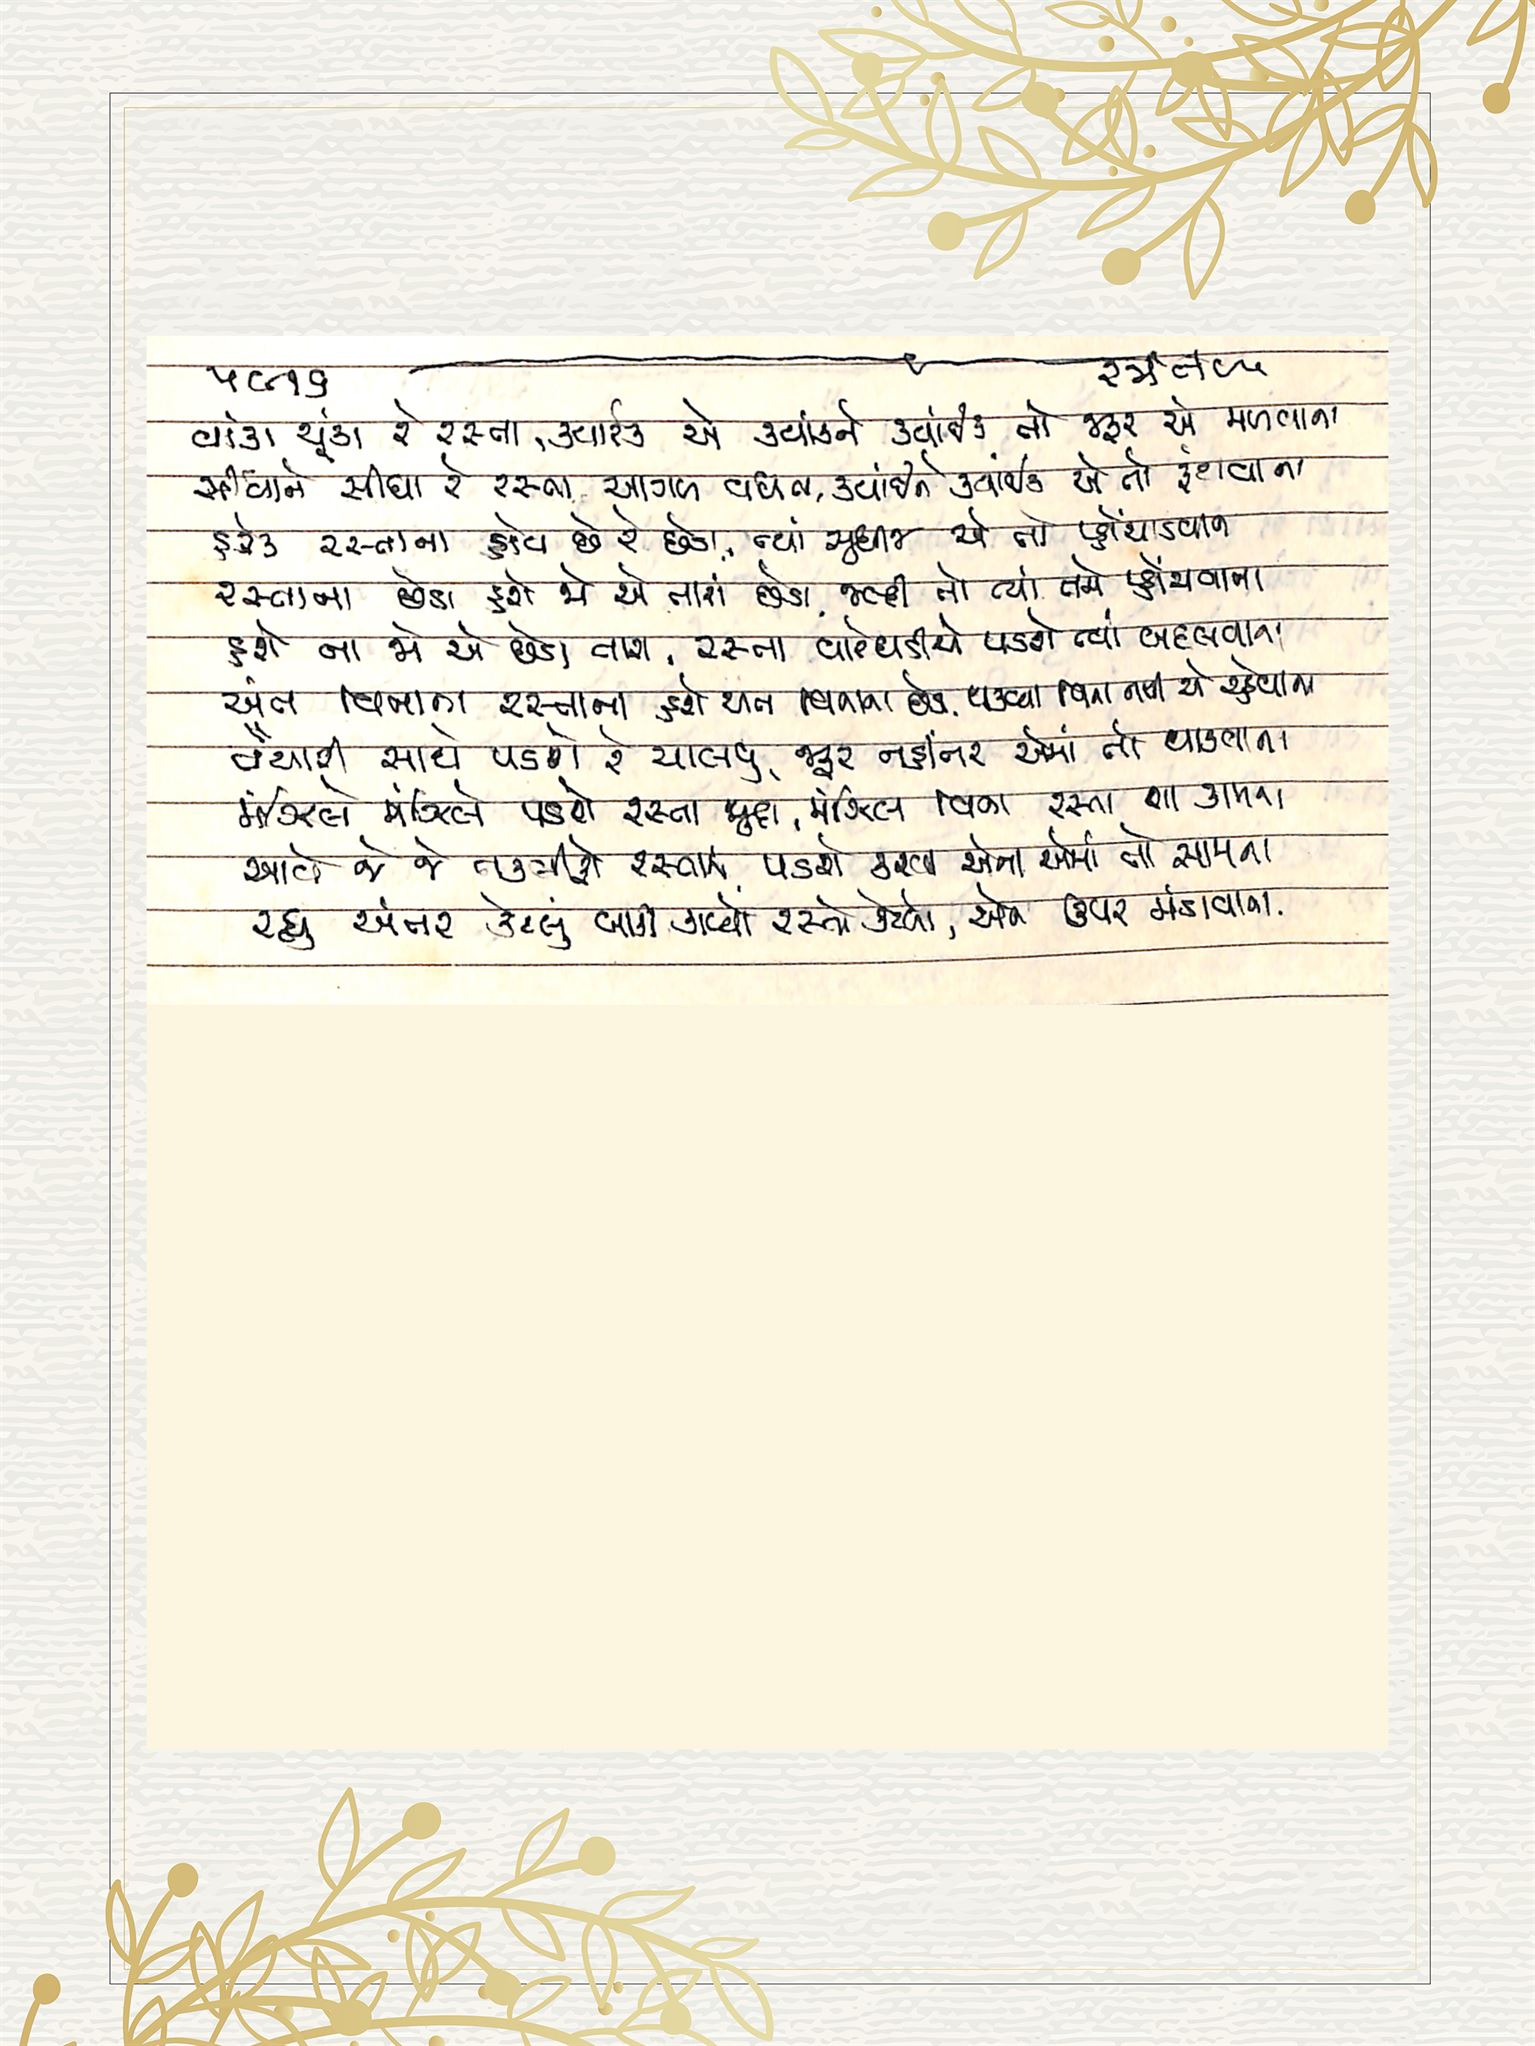 ૫૯૧૬
વાંકા ચૂંકા રે રસ્તા, ક્યારેક એ ક્યાંકને ક્યાંક તો જરૂર એ મળવાના
સીધાને સીધા રે રસ્તા આગળ વધતા, ક્યાંકને ક્યાંક એ તો ફંટાવાના
હરેક રસ્તાના હોય છે રે છેડા, ત્યાં સુધીજ એ તો પહોંચાડવાના
રસ્તાના છેડા હશે જો એ તારાં છેડા, જલ્દી તો ત્યાં તમે પહોંચવાના
હશે ના જો એ છેડા તારા, રસ્તા વારેઘડીએ પડશે ત્યાં બદલવાના
અંત વિનાના રસ્તાના હશે અંત વિનાના છેડા, થકવ્યા વિના નથી એ રહેવાના
તૈયારી સાથે પડશે રે ચાલવું, જરૂર નહીંતર એમાં તો થાકવાના
મંઝિલે મંઝિલે પડશે રસ્તા જુદા, મંઝિલ વિના રસ્તા શા કામના
આવે જે જે તકલીફો રસ્તામાં, પડશે કરવા એના એમાં તો સામના
રહ્યું અંતર કેટલું બાકી કાપ્યો રસ્તો કેટલો, એના ઉપર મંડાવાના.